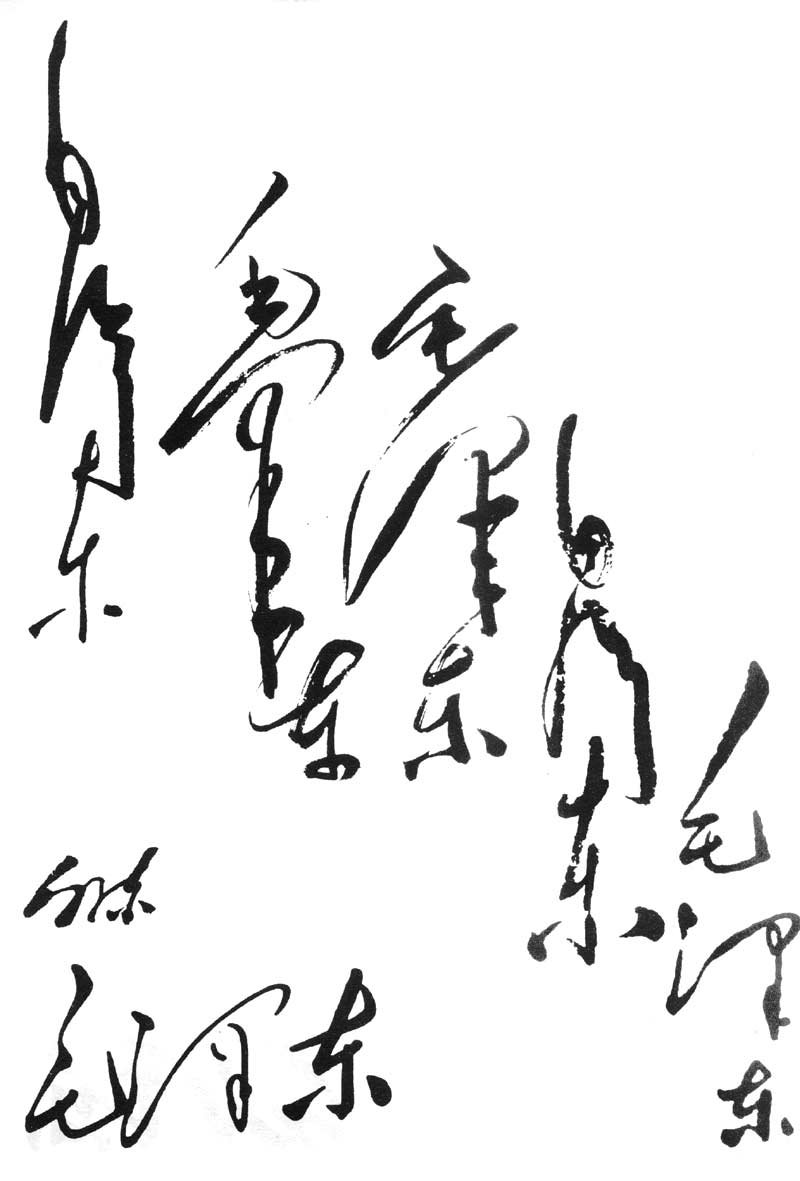 毛泽东
毛泽东
毛泽东
毛泽东
毛泽东
泽东
毛泽东